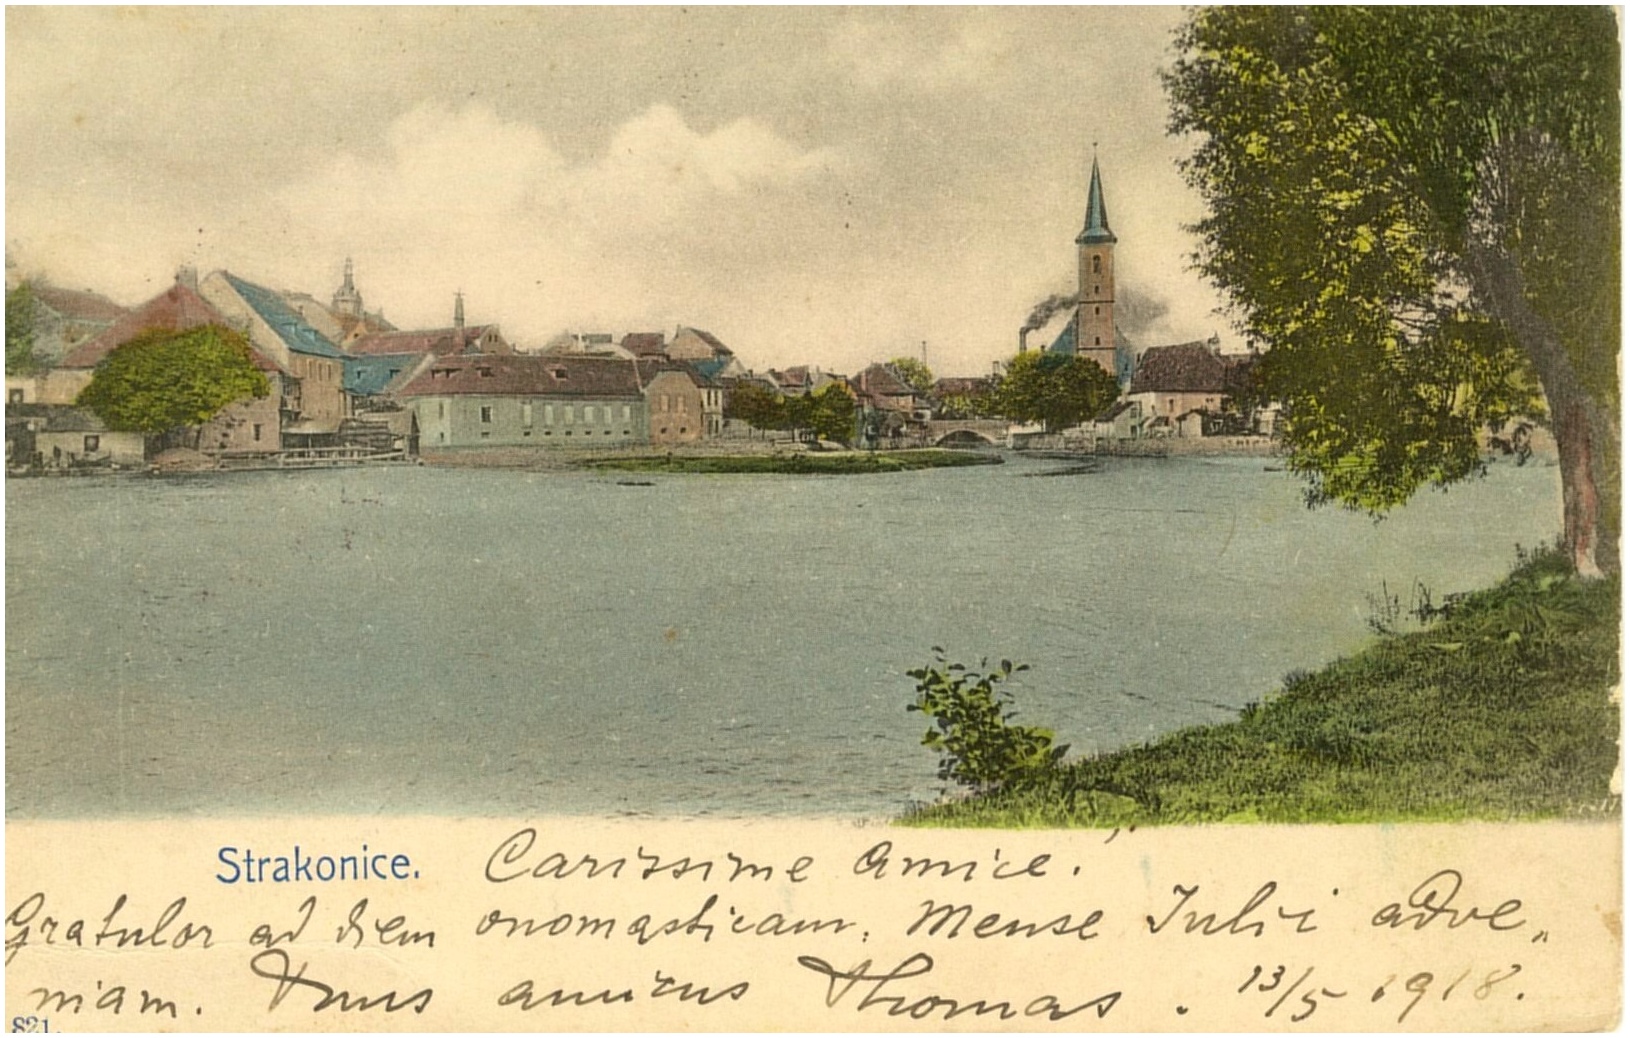 Strakonice. Carissime Amice!
Gratulor ad diem onomasticam. Mense Julii adve„
niam. Tuus amicus Thomas. 13/5 1918.
821.